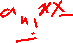 ani xx